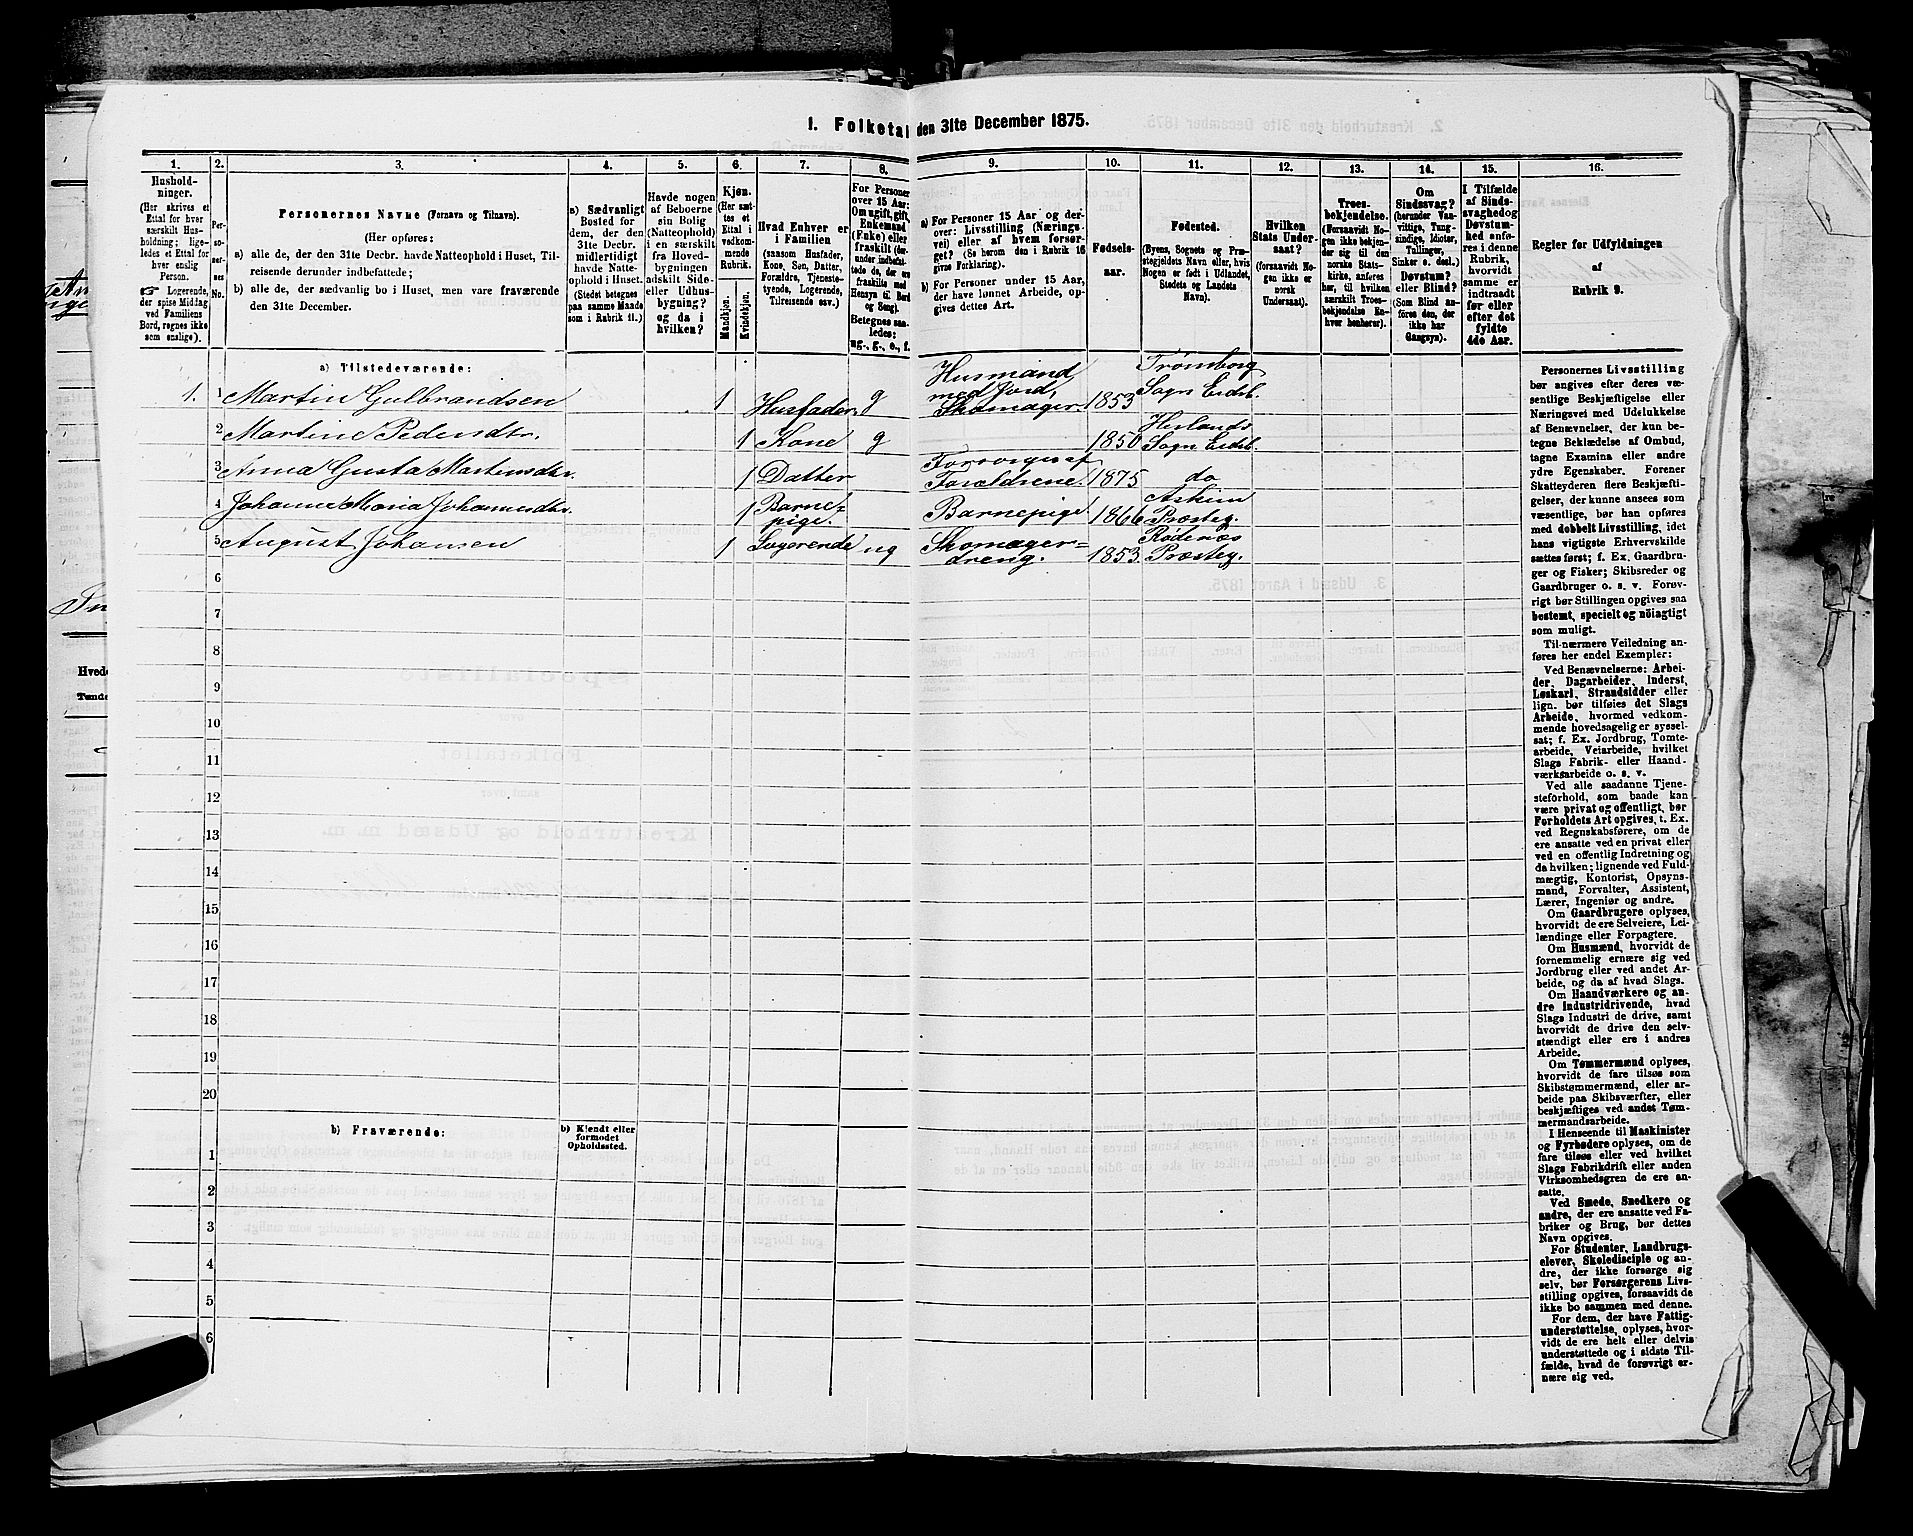 1. Folketal den 31te December 1875.
1.
2.
3.
4.
5.
6.
7.
8.
9.
10.
11.
12.
13.
14.
15.
16.
Hushold-
ninger.
(Her skrives et
Ettal for hver
særskilt Hus-
holdning; lige-
ledes et Ettal for
hver enslig
Person.
☞ Logerende,
der spise Middag
ved Familiens
Bord, regnes ikke
som enslige).
Per-
so-
ner-
nes
No.
Personernes Navne (Fornavn og Tilnavn).
(Her opføres:
a) alle de, der den 31te Decbr. havde Natteophold i Huset, Til-
reisende derunder indbefattede;
b) alle de, der sædvanlig bo i Huset, men vare fraværende
den 31te December.
a) Sædvanligt
Bosted for
dem, der den
31te Decbr.
midlertidigt
havde Natte-
ophold i Huset.
(Stedet betegnes
paa samme Maade
som i Rubrik 11.)
Havde nogen
af Beboerne
sin Bolig
(Natteophold)
i en særskilt
fra Hoved-
bygningen
adskilt Side-
eller Udhus-
bygning?
og da i
hvilken?
Kjøn.
(Her sæt-
tes et
Ettal i
vedkom-
mende
Rubrik.
Mandkjøn.
Kvindekjøn.
Hvad Enhver er
i Familien
(saasom Husfader,
Kone, Søn, Datter,
Forældre, Tjeneste-
tyende, Logerende,
Tilreisende osv.)
For Personer
over 15 Aar:
Om ugift, gift,
Enkemand
(Enke) eller
fraskilt (der-
under indbefat-
tede de, der ere
fraskilte med
Hensyn til Bord
og Seng).
Betegnes saa-
ledes:
ug., g., e., f.
a) For Personer 15 Aar og der-
over: Livsstilling (Nærings-
vei) eller af hvem forsør-
get? (Se herom den i Rubrik 16
givne Forklaring).
b) For Personer under 15 Aar,
der have lønnet Arbeide, op-
gives dettes Art.
Fødsels-
aar.
Fødested.
(Byens, Sognets og Præ-
stegjeldets Navn eller, hvis
Nogen er født i Udlandet,
Stedets og Landets
Navn).
Hvilken
Stats Under-
saat?
(forsaavidt No-
gen ikke er
norsk
Undersaat).
Troes-
bekjendelse.
(Forsaavidt No-
gen ikke bekjen-
der sig til den
norske Stats-
kirke, anføres
her, til hvilken
særskilt Troes-
bekjendelse En-
hver henhører).
Om
Sindssvag?
(herunder Van-
vittige, Tung-
sindige, Idioter,
Tullinger,
Sinker o. desl.)
Døvstum?
eller Blind?
(Som Blind an-
føres den, der
ikke har
Gangsyn).
I Tilfælde
af Sinds-
svaghed og
Døvstum-
hed anfø-
res i denne
Rubrik,
hvorvidt
samme er
indtraadt
før eller
efter det
fyldte
4de Aar.
Regler for Udfyldningen
af
Rubrik 9.
a) Tilstedeværende:
1. 1 Martin Gulbrandsen 1 Husfader g Husmand med Jord, Skomager 1853 Trømborg Sogn Eidsb.
2 Martine Pedersdtr. 1 Kone g 1850 Herlands Sogn Eidsb.
3 Anna Gusta Martinsdtr. 1 Datter Forsørges af Forældrene 1875 do
4 Johanne Maria Johannesdtr. 1 Barnepige. Barnepige 1866 Askim Præsteg.
5 August Johansen 1 Logerende ug Skomagerdreng. 1853 Rødenæs Præsteg.
6
7
8
9
10
11
12
13
14
15
16
17
18
19
20
b) Fraværende:
b) Kjendt eller
formodet
Opholdssted.
1
2
3
4
5
6
Personernes Livsstilling
bør angives efter deres væ-
sentlige Beskjæftigelse eller
Næringsvei med Udelukkelse
af Benævnelser, der kun be-
tegne Beklædelse af Ombud,
tagne Examina eller andre
ydre Egenskaber. Forener
Skatteyderen flere Beskjæfti-
gelser, der kunne ansees som
væsentlige, bør han opføres
med dobbelt Livsstilling, idet
hans vigtigste Erhvervskilde
sættes først; f. Ex. Gaardbru-
ger og Fisker; Skibsreder og
Gaardbruger o. s. v. Forøv-
rigt bør Stillingen opgives saa
bestemt, specielt og nöiagtigt
som muligt.
Til nærmere Veiledning an-
føres her endel Exempler:
Ved Benævnelserne: Arbei-
der, Dagarbeider, Inderst,
Løskarl, Strandsidder eller
lign. bør tilføies det Slags
Arbeide, hvormed vedkom-
mende hovedsagelig er syssel-
sat; f. Ex. Jordbrug, Tomte-
arbeide, Veiarbeide, hvilket
Slags Fabrik- eller Haand-
værksarbeide o. s. v.
Ved alle saadanne Tjene-
steforhold, som baade kan
være privat og offentligt, bør
Forholdets Art opgives, t. Ex.
ved Regnskabsførere, om de
ere ansatte ved en privat eller
ved en offentlig Indretning og
da hvilken; lignende ved Fuld-
mægtig, Kontorist, Opsyns-
mand, Forvalter, Assistent,
Lærer, Ingeniør og andre.
Om Gaardbrugere oplyses,
hvorvidt de ere Selveiere, Lei-
lændinge eller Forpagtere.
Om Husmænd, hvorvidt de
fornemmelig ernære sig ved
Jordbrug eller ved andet Ar-
beide, og da af hvad Slags.
Om Haandværkere og an-
dre Industridrivende, hvad
Slags Industri de drive, samt
hvorvidt de drive den selv-
stændigt eller ere i andres
Arbeide.
Om Tømmermænd oplyses,
hvorvidt de fare tilsøs som
Skibstømmermænd, eller ar-
beide paa Skibsværfter, eller
beskjæftiges ved andet Tøm-
mermandsarbeide.
I Henseende til Maskinister
og Fyrbødere oplyses, om de
fare tilsøs eller ved hvilket
Slags Fabrikdrift eller anden
Virksomhedsgren de ere an-
satte.
Ved Smede, Snedkere og
andre, der ere ansatte ved Fa-
briker og Brug, bør dettes
Navn opgives.
For Studenter, Landbrugs-
elever, Skoledisciple og an-
dre, der ikke forsørge sig
selv, bør Forsørgerens Livs-
stilling opgives, forsaavidt de
ikke bo sammen med denne.
For dem, der have Fattig-
understøttelse, oplyses, hvor-
vidt de ere helt eller delvis
understøttede og i sidste Til-
fælde, hvad de forøvrigt er-
nære sig ved.